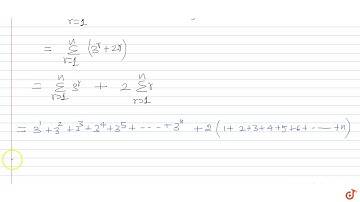 r=1
= n∑r=1 (3^r + 2r)
= n∑r=1 3^r + 2 n∑r=1 r
= 3^1 + 3^2 + 3^3 + 3^4 + 3^5 + ---- + 3^n + 2 (1 + 2 + 3 + 4 + 5 + 6 + ---- + n)